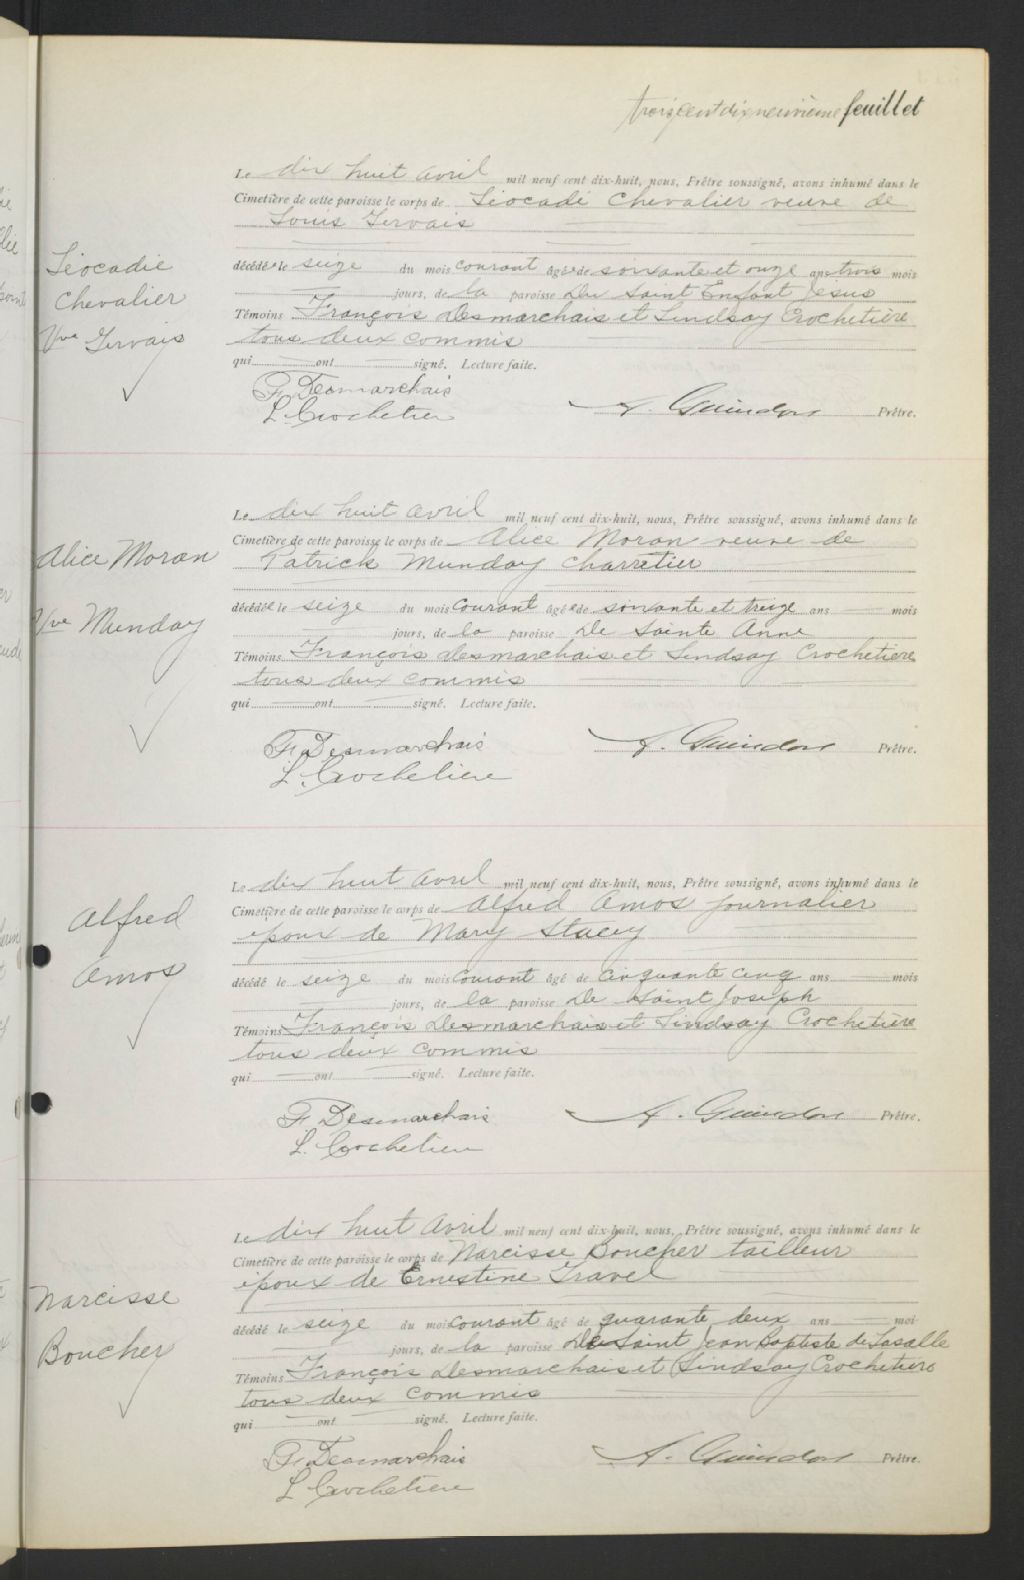 trois cent dix neuvième feuillet
Le dix huit avril mil neuf cent dix-huit, nous, Prêtre soussigné, avons inhumé dans le
Cimetière de cette paroisse le corps de Léocadi Chevalier veuve de
Louis Gervais
Léocadie
Chevalier
Vve Gervais
décédée le seize du mois courant âgée de soixante et onze ans trois mois
jours, de la paroisse Du Saint Enfant Jésus
Témoins François Desmarchais et Lindsay Crochetière
tous deux commis
qui ont signé. Lecture faite.
F. Desmarchais
L. Crochetière
A. Guindon Prêtre.
Le dix huit avril mil neuf cent dix-huit, nous, Prêtre soussigné, avons inhumé dans le
Cimetière de cette paroisse le corps de Alice Moran veuve de
Patrick Munday charretier
Alice Moran
Vve Munday
décédée le seize du mois courant âgée de soixante et treize ans mois
jours, de la paroisse De Sainte Anne
Témoins François Desmarchais et Lindsay Crochetiere
tous deux commis
qui ont signé. Lecture faite.
F. Desmarchais
L. Crochetiere
A. Guindon Prêtre.
Le dix huit avril mil neuf cent dix-huit, nous, Prêtre soussigné, avons inhumé dans le
Cimetière de cette paroisse le corps de Alfred Amos journalier
époux de Mary Stacey
Alfred
Amos
décédé le seize du mois courant âgé de cinquante cinq ans mois
jours, de la paroisse De Saint Joseph
Témoins François Desmarchais et Lindsay Crochetière
tous deux commis
qui ont signé. Lecture faite.
F. Desmarchais
L. Crochetiere
A. Guindon Prêtre.
Le dix huit avril mil neuf cent dix-huit, nous, Prêtre soussigné, avons inhumé dans le
Cimetière de cette paroisse le corps de Narcisse Boucher tailleur
époux de Ernestine Gravel
Narcisse
Boucher
décédé le seize du mois courant âgé de quarante deux ans moi
jours, de la paroisse De Saint Jean Baptiste de Lasalle
Témoins François Desmarchais et Lindsay Crochetiere
tous deux commis
qui ont signé. Lecture faite.
F. Desmarchais
L. Crochetiere
A. Guindon Prêtre.